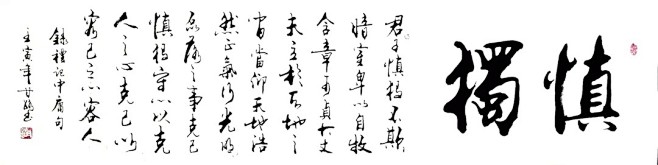 慎獨
君子慎獨不欺
暗室卑以自牧
含章可貞大丈
夫立於天地之
間當仰天地浩
然正氣行光明
磊落之事克己
慎獨守心以克
人之心克己以
容己之心容人
錄禮記中庸句
壬寅年書